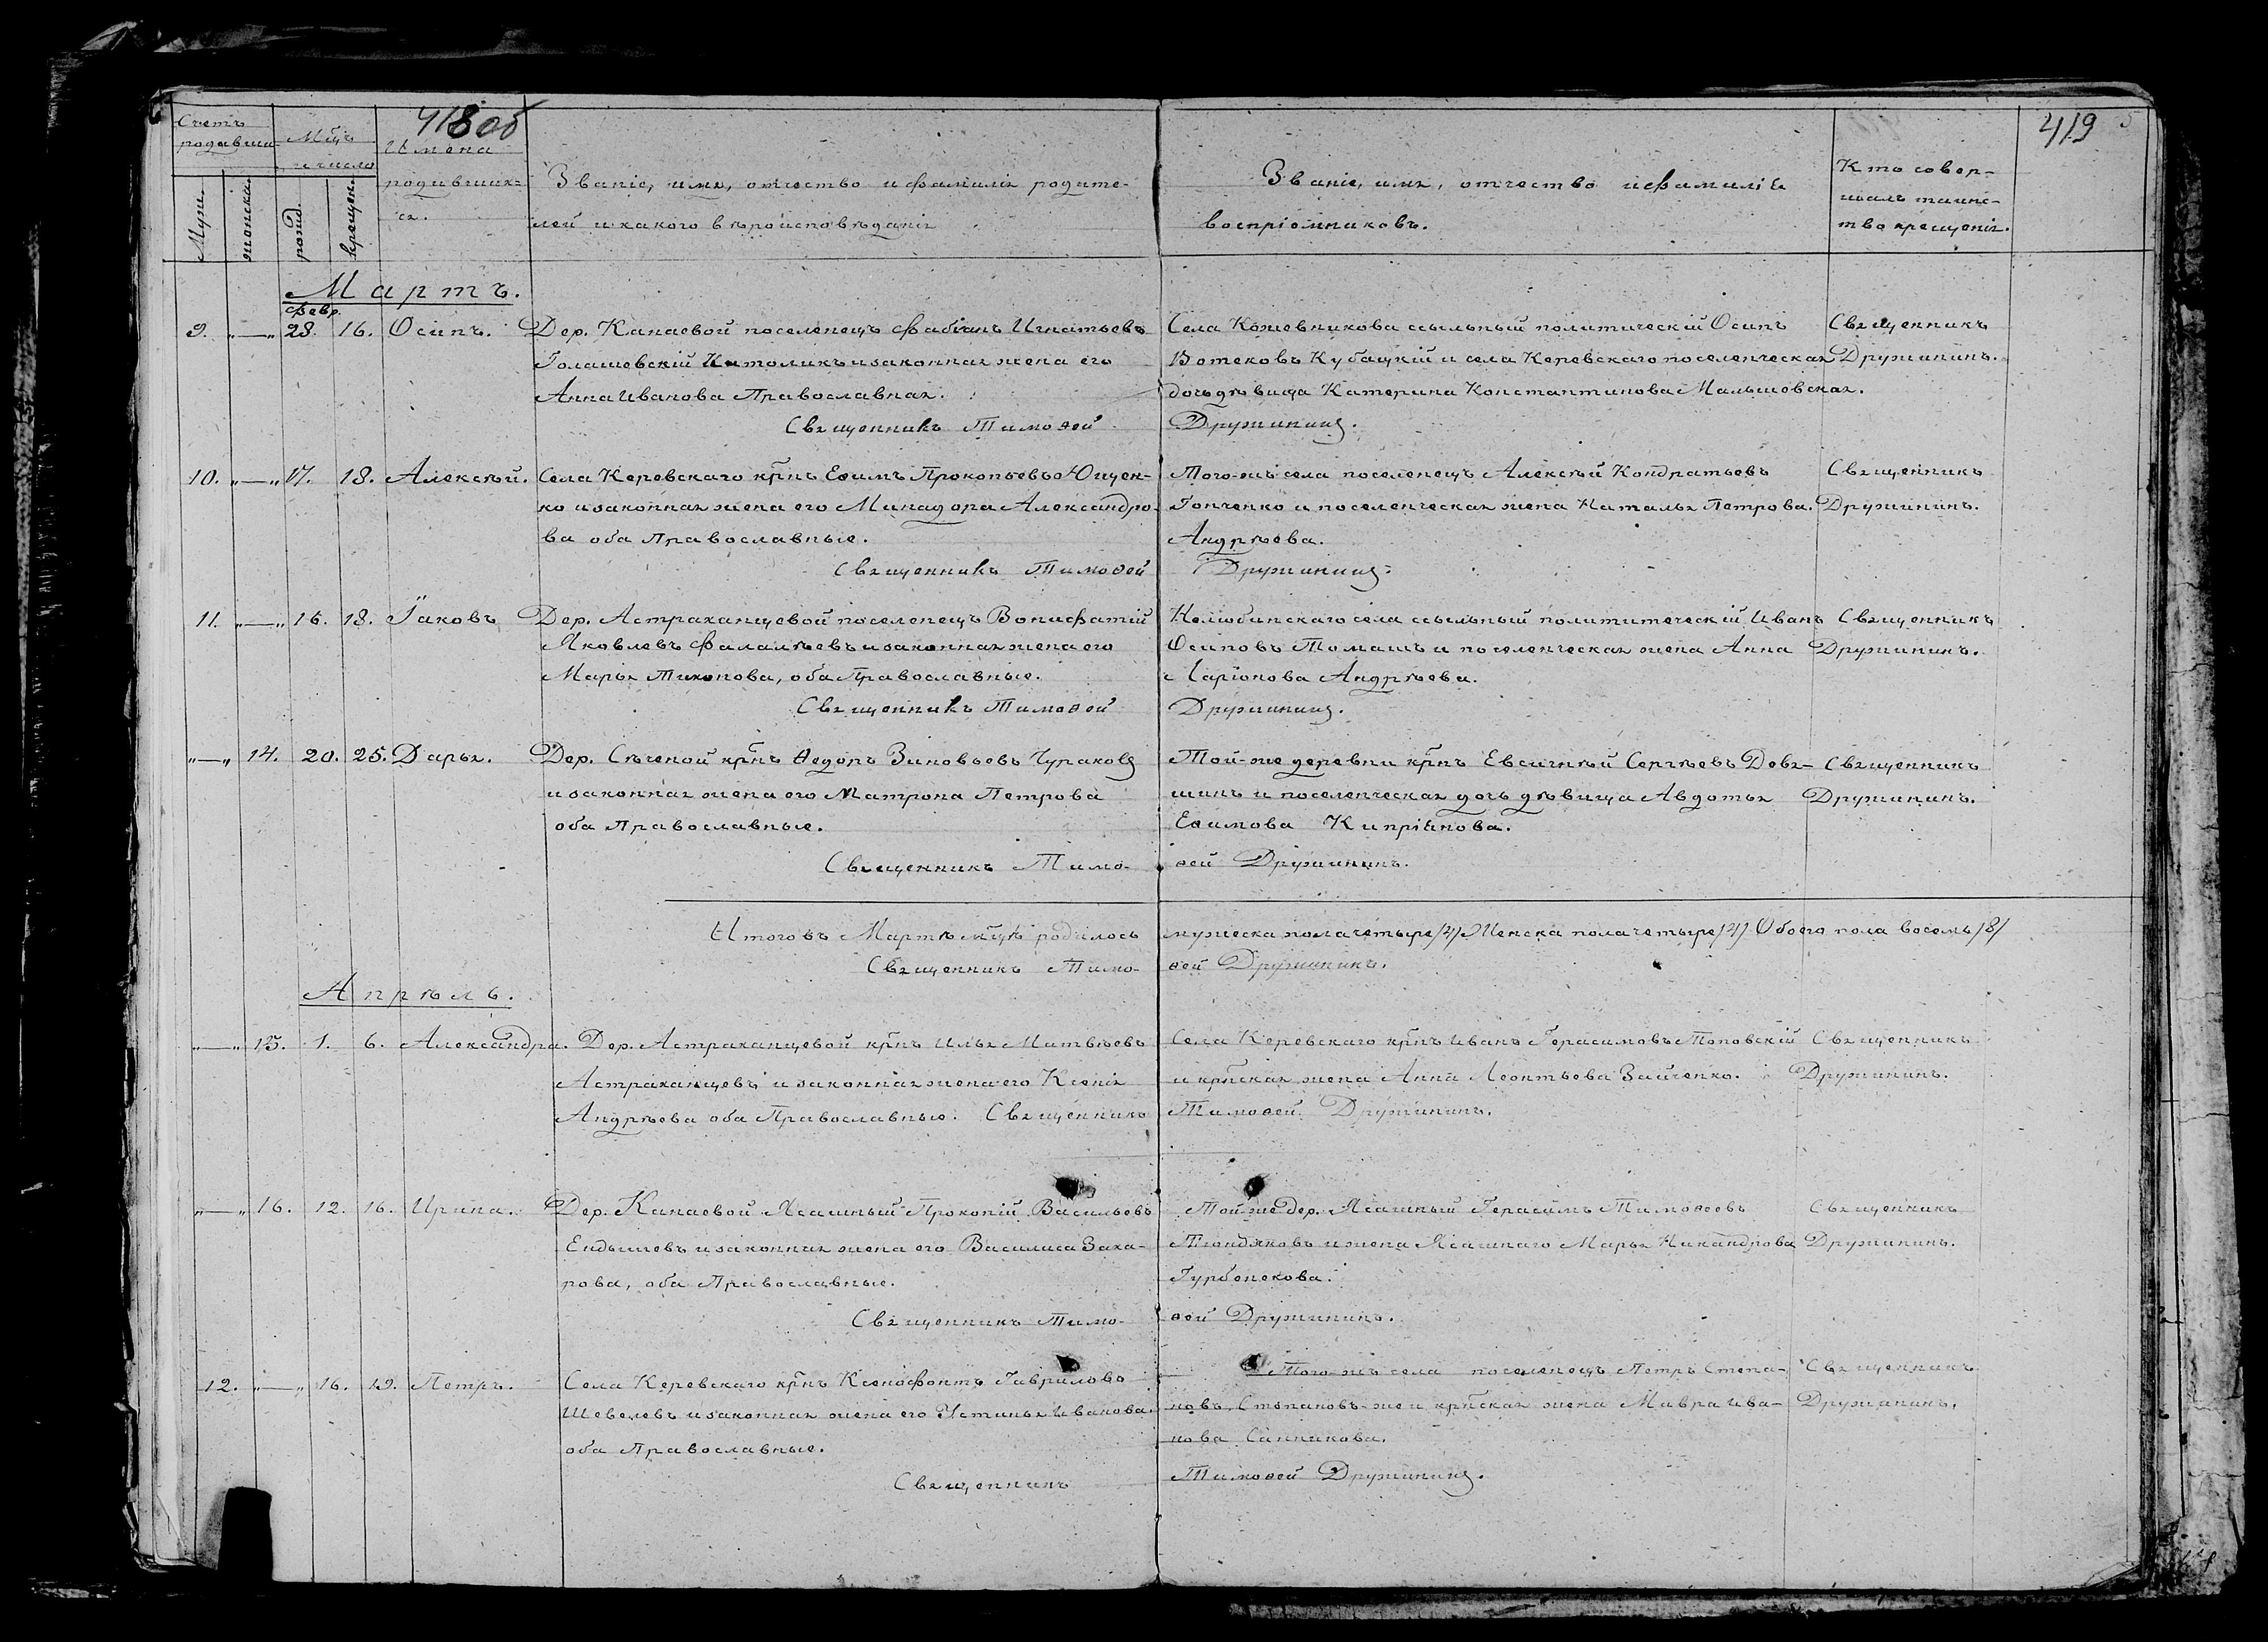 418 об
419
Счетъ родившихся
Муж.
женска.
Мѣцъ и число
рожд.
крещен.
Имена родившихся.
Званіе, имя, отчество и фамилія родите-
лей и какого вѣроисповѣданія
Званіе, имя, отчество и фамилія
воспріемниковъ.
Кто совер-
шалъ таинс-
тво крещенія.
Мартъ.
Февр.
9. "—" 28. 16. Осипъ.
Дер. Канаевой поселенецъ Фабіанъ Игнатьевъ
Голашовскій Католикъ и законная жена его
Анна Иванова Православная.
Священникъ Тимоѳей
Села Кожевникова ссыльный политическій Осипъ
Вотековъ Кубацкій и села Керевскаго поселенческая
дочь дѣвица Катерина Константинова Малышовская.
Дружининъ.
Священникъ
Дружининъ.
10. "—" 17. 18. Алексѣй.
Села Керевскаго крнъ Еѳимъ Прокопьевъ Ющен-
ко и законная жена его Минадора Александро-
ва оба Православные.
Священникъ Тимоѳей
Того-жъ села поселенецъ Алексѣй Кондратьевъ
Гонченко и поселенческая жена Наталья Петрова
Андрѣева.
Дружининъ.
Священникъ
Дружининъ.
11. "—" 16. 18. Іаковъ
Дер. Астраханцевой поселенецъ Вонифатій
Яковлевъ Фаламѣевъ и законная жена его
Марья Тихонова, оба Православные.
Священникъ Тимоѳей
Желюбинскаго села ссыльный политическій Иванъ
Осиповъ Томашъ и поселенческая жена Анна
Ларіонова Андрѣева.
Дружининъ.
Священникъ
Дружининъ.
"—" 14. 20. 25. Дарья.
Дер. Сѣченой крнъ Ѳедоръ Зиновьевъ Чураковъ
и законная жена его Матрона Петрова
оба Православные.
Священникъ Тимо-
Той-же деревни крнъ Евсигнѣй Сергѣевъ Девя-
шинъ и поселенческая дочь дѣвица Авдотья
Еѳимова Кипріянова.
ѳей Дружининъ.
Священникъ
Дружининъ.
Итого въ Мартѣ мѣцѣ родилось
мужеска пола четыре /4/ Женска пола четыре /4/ Обоего пола восемь /8/
Священникъ Тимо-
ѳей Дружининъ.
Апрѣль.
"—" 15. 1. 6. Александра.
Дер. Астраханцевой крнъ Илья Матвѣевъ
Астраханцевъ и законная жена его Ксенія
Андрѣева оба Православные. Священникъ
Села Керевскаго крнъ Иванъ Герасимовъ Поповскій
и крнская жена Анна Леонтьева Зайченко.
Тимоѳей Дружининъ.
Священникъ
Дружининъ.
"—" 16. 12. 16. Ирина.
Дер. Канаевой Ясашный Прокопій Васильевъ
Ендышевъ и законная жена его Василиса Заха-
рова, оба Православные.
Священникъ Тимо-
Той же дер. Ясашный Герасимъ Тимоѳеевъ
Тюндяковъ и жена Ясашнаго Марья Никандрова
Гурбенекова.
ѳей Дружининъ.
Священникъ
Дружининъ.
12. "—" 16. 19. Петръ.
Села Керевскаго крнъ Ксенофонтъ Гавриловъ
Шевелевъ и законная жена его Устинья Иванова.
оба Православные.
Священникъ
Того-жъ села поселенецъ Петръ Степа-
новъ Степановъ-же и крнская жена Мавра Ива-
нова Санникова.
Тимоѳей Дружининъ.
Священникъ
Дружининъ.